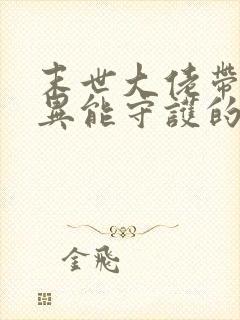 末世大佬帶
異能守護的
金飛